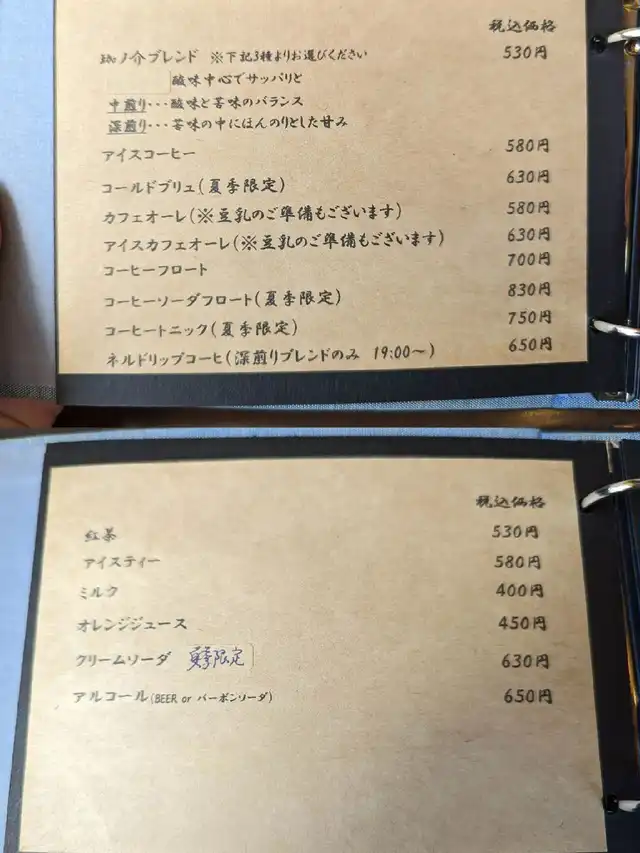 税込価格
珈ノ介ブレンド ※下記3種よりお選びください 530円
酸味中心でサッパリと
中煎り・・・酸味と苦味のバランス
深煎り・・・苦味の中にほんのりとした甘み
アイスコーヒー 580円
コールドブリュ(夏季限定) 630円
カフェオーレ(※豆乳のご準備もございます) 580円
アイスカフェオーレ(※豆乳のご準備もございます) 630円
コーヒーフロート 700円
コーヒーソーダフロート(夏季限定) 830円
コーヒートニック(夏季限定) 750円
ネルドリップコーヒ(深煎りブレンドのみ 19:00〜) 650円
税込価格
紅茶 530円
アイスティー 580円
ミルク 400円
オレンジジュース 450円
クリームソーダ 夏季限定 630円
アルコール(BEER or バーボンソーダ) 650円